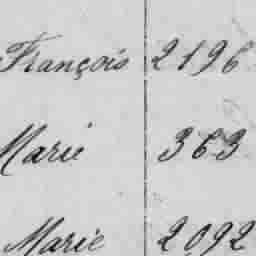 François 2196
Marie 363
Marie 2092